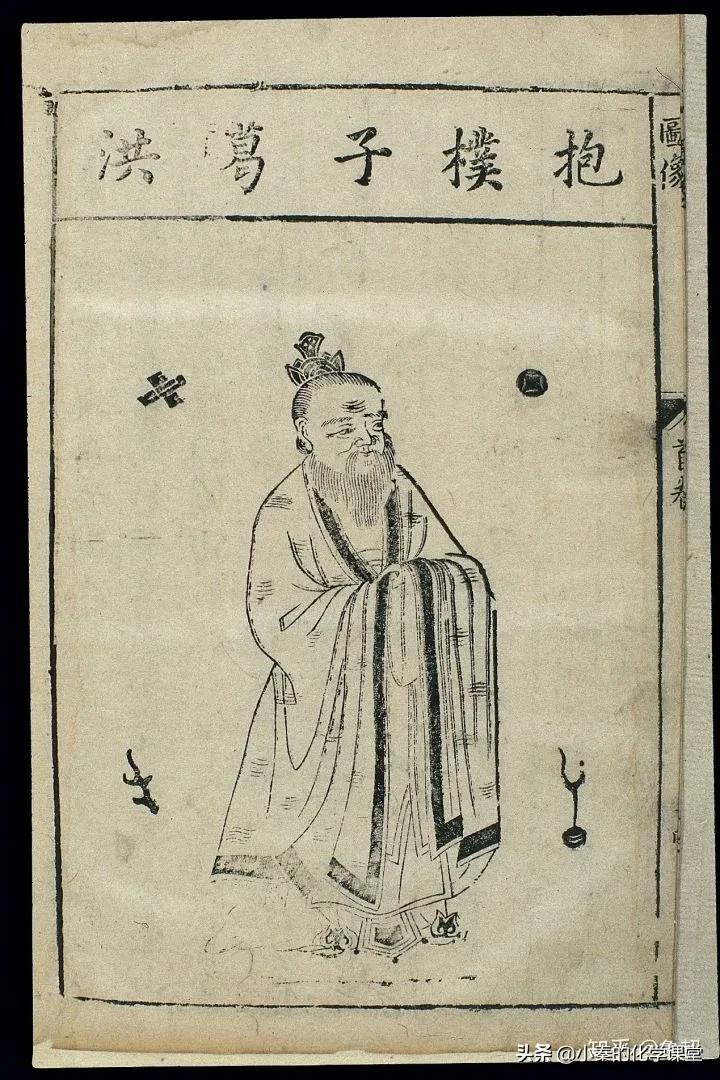 抱樸子葛洪
圖像
首卷
头条 @小秦的化学课堂